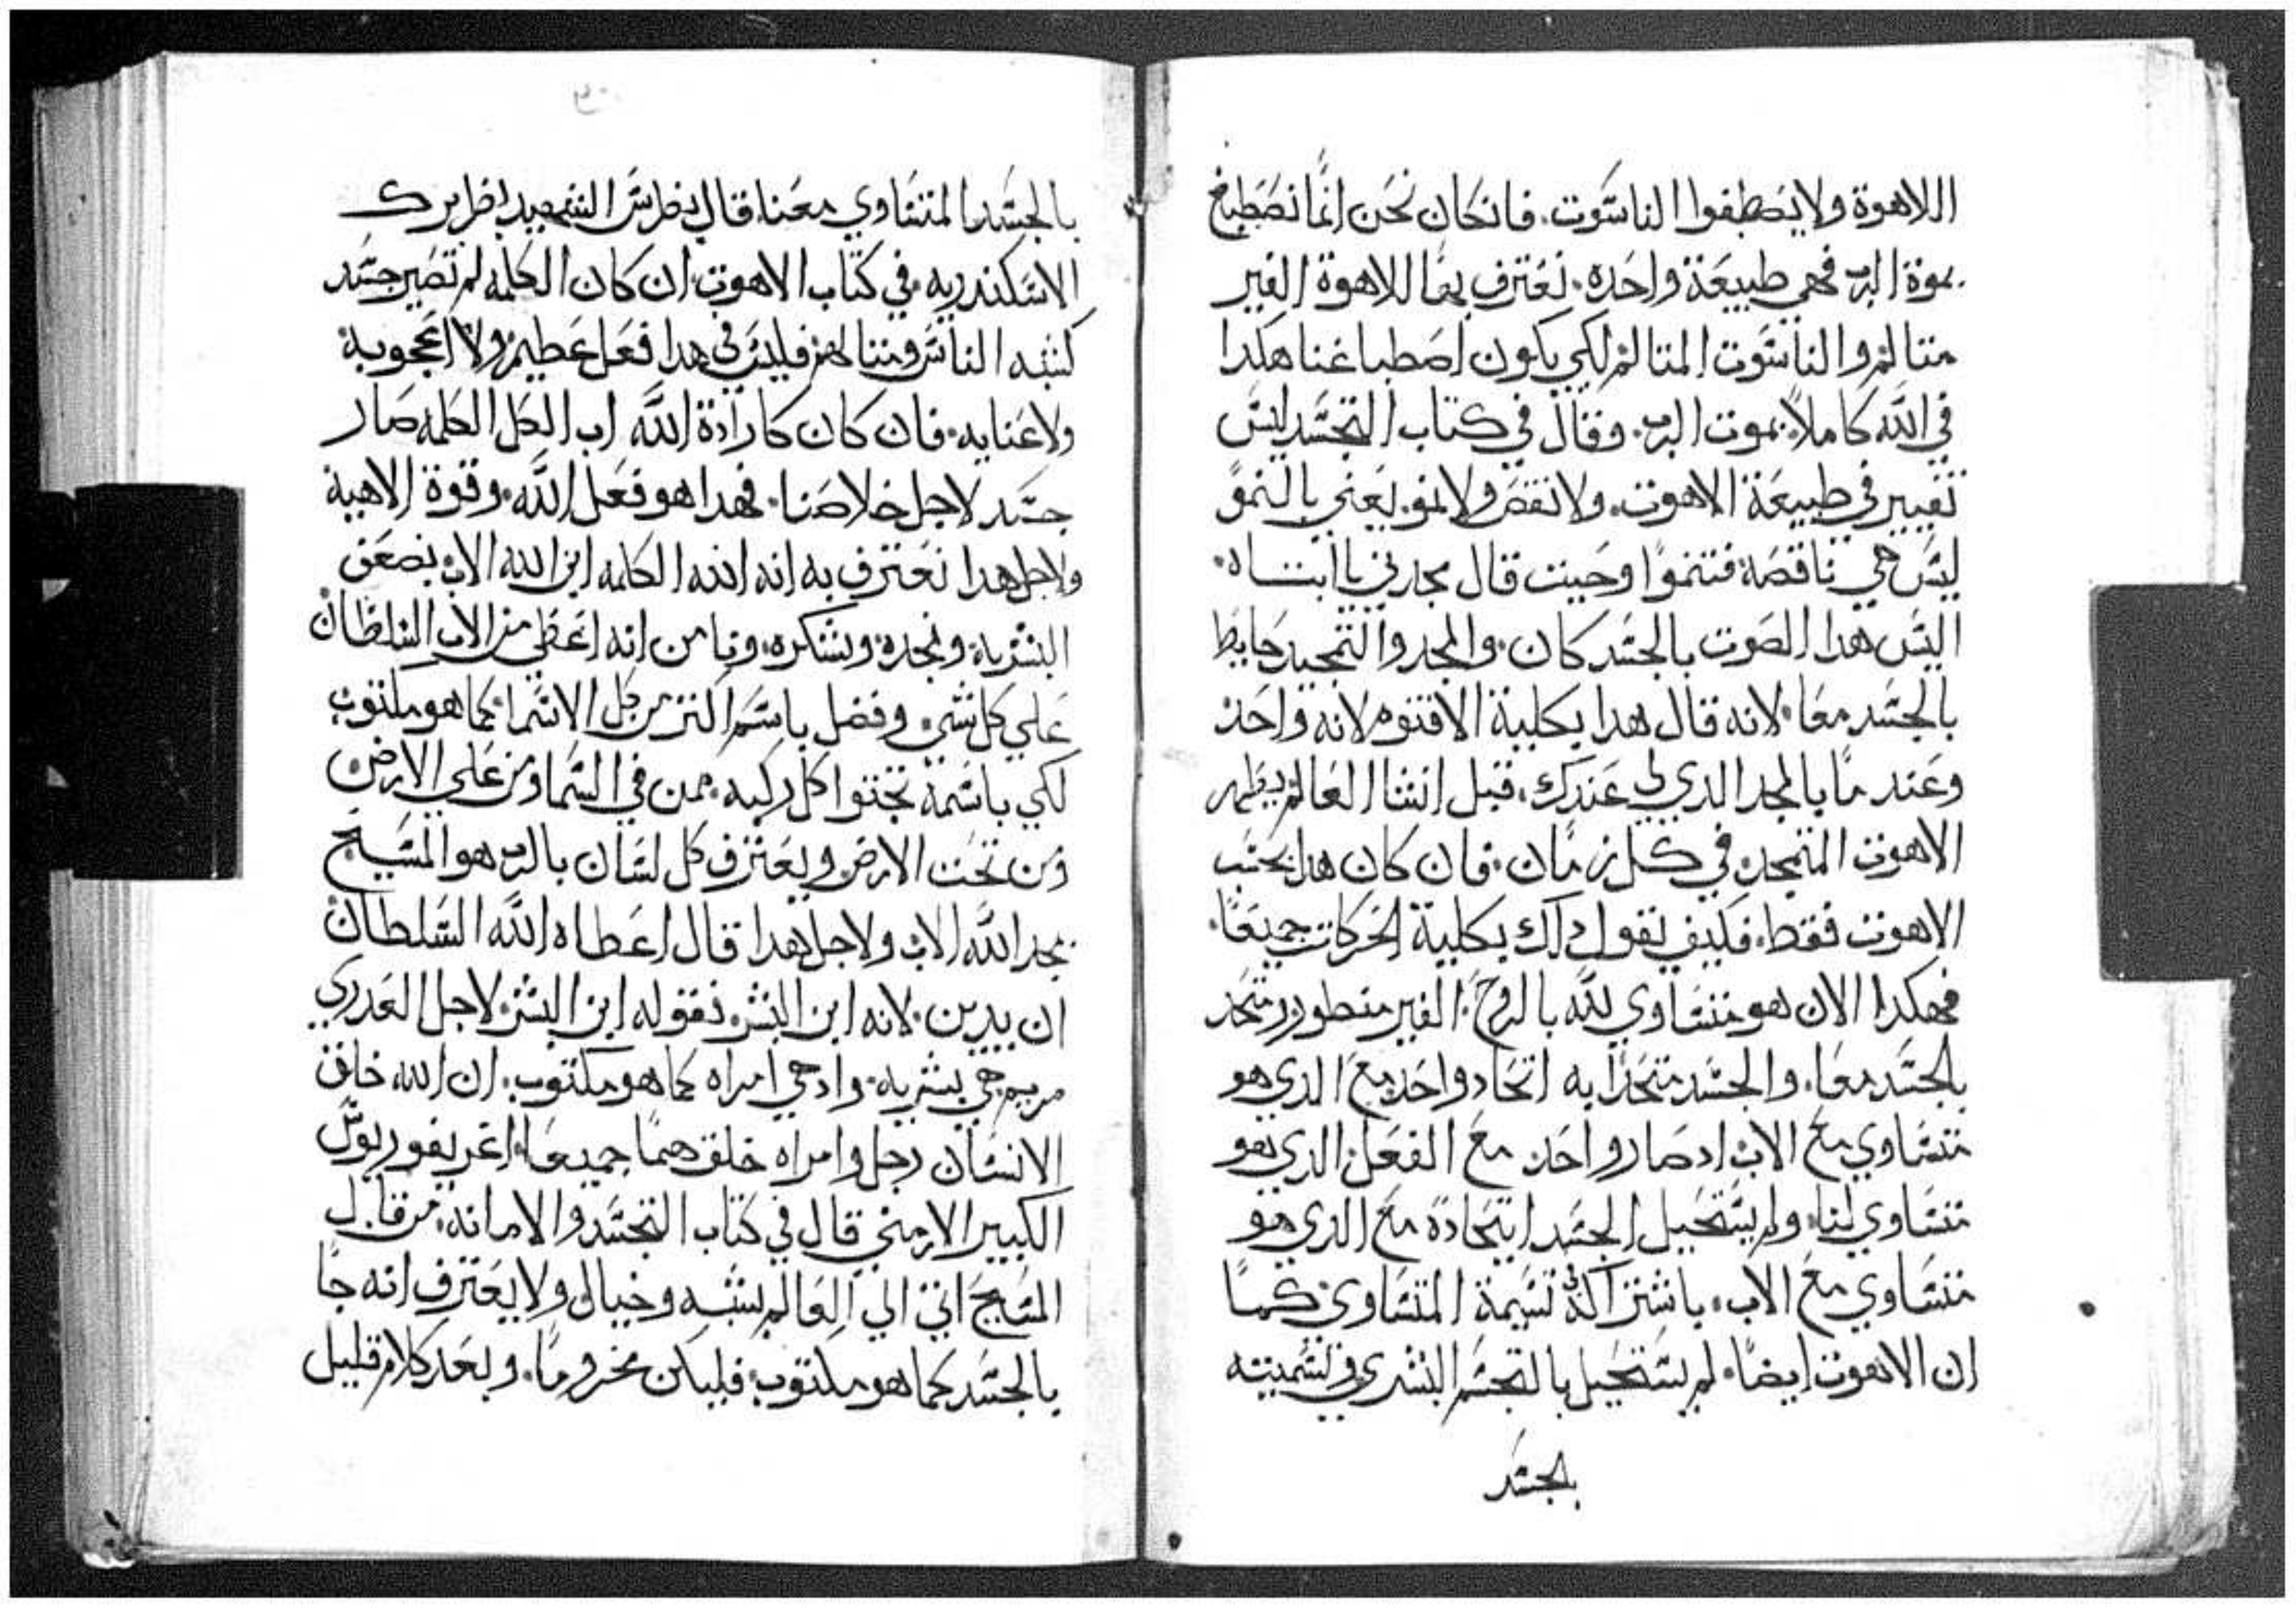 اللاهوة ولا يصطفوا الناسوت. فانكان نحن انما نصطبغ
بموة الرب فهي طبيعة واحده. نعترف بها اللاهوة الغير
متالم والناسوت المتالم لكي يكون اصطباغنا هكدا
في الله كاملاً بموت الرب. وقال في كتاب التجسد ليس
تغيير في طبيعة الاهوت. ولا نقص ولا نمو. يعني بالنمو
ليس هي ناقصة فتنموا وحينت قال مجدني يا ابتاه.
اليس هدا الصوت بالجسد كان. والمجد والتمجيد حايط
بالجسد معا. لانه قال هدا بكلية الاقنوم لانه واحد
وعند ما بالمجد الدي لي عندك. قبل انشا العالم يظهر
الاهوت المتمجد. في كل زمان. فان كان هدا بحسب
الاهوت فقط. فكيف نقول داك بكلية الحركات جميعا.
فهكدا الان هو متساوي لله بالروح. الغير منطور متحد
بالجسد معا. والجسد متحداً به اتحاد واحد مع الدي هو
متساوي مع الاب اد صار واحد مع الفعل الدي هو
متساوي لنا. ولم يستحيل الجسد ايتحادة مع الدي هو
متساوي مع الاب. باشتراك تسيمة المتساوي كما
ان الاهوت ايضا. لم يستحيل بالتجسم البشري في تسميته
بالجسد
بالجسد المتساوي معنا. قال بطرس الشهيد بطريرك
الاسكندريه. في كتاب الاهوت. ان كان الكلمه لم تصير جسد
كشبه الناس فليس في هدا فعل عظيم ولا اعجوبة
ولا عنايه. فان كان كارادة الله اب الكل الكلمه صار
جسد لاجل خلاصنا. فهدا هو فعل الله. وقوة الاهية
ولاجل هدا نعترف به انه الكلمه ابن الله الاب بضعف
البشرية. ونمجده ونشكره. ونامن انه اعطي من الاب السلطان
علي كل شي. وفضل باسم اكتر من كل الاسما. كما هو مكتوب
لكي باسمه تجتوا كل ركبه. ممن في السما ومن علي الارض.
ومن تحت الارض ويعترف كل لسان بالرب هو المسيح
بمجد الله الاب ولاجل هدا قال اعطاه الله السلطان
ان يدين. لانه ابن البشر. نقوله ابن البشر. لاجل العدري
مريم هي بشريه. واد هي امراه كما هو مكتوب. ان الله خلق
الانسان رجل وامراه خلقهما جميعا. اغريغوريوس
الكبير الارمني قال في كتاب التجسد والامانه. من قال
المسيح اتي الي العالم بشبه وخيال ولا يعترف انه جا
بالجسد كما هو مكتوب. فليكن محروما. وبعد كلام قليل